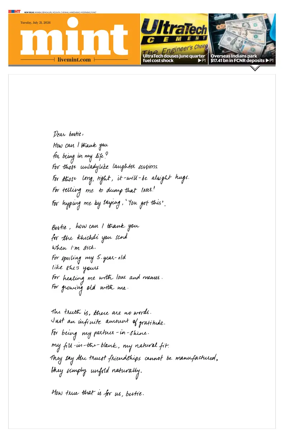 Sunday, July 26, 2026
mint
livemint.com
UltraTech
CEMENT
The Engineer's Choice
UltraTech douses June quarter
fuel cost shock
▶P1
Overseas Indians park
$17.41 bn in FCNR deposits ▶P1
Dear bestie,
How can I thank you
For being in my life?
For those unladylike laughter sessions
For those long, tight, it-will-be alright hugs.
For telling me to dump that loser!
For hyping me by saying, "You got this".
Bestie, how can I thank you
for the khichdi you send
when I'm sick.
For spoiling my 5-year-old
like she's yours
For healing me with love and memes.
For growing old with me.
The truth is, there are no words.
Just an infinite amount of gratitude.
For being my partner-in-shine.
my fill-in-the-blank, my natural fit.
They say the truest friendships cannot be manufactured,
they simply unfold naturally.
How true that is for us, bestie.